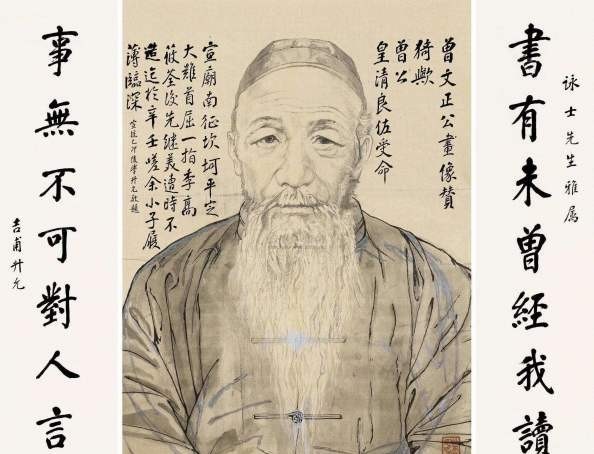 詠士先生雅属
書有未曾經我讀
曾文正公畫像贊
猗歟
曾公
皇清良佐受命
宣廟南征坎坷平定
大難首屈一指李高
筱荃後先繼美遭時不
造迄於辛壬嗟余小子履
薄臨深
後學升允敬題
事無不可對人言
吉甫升允